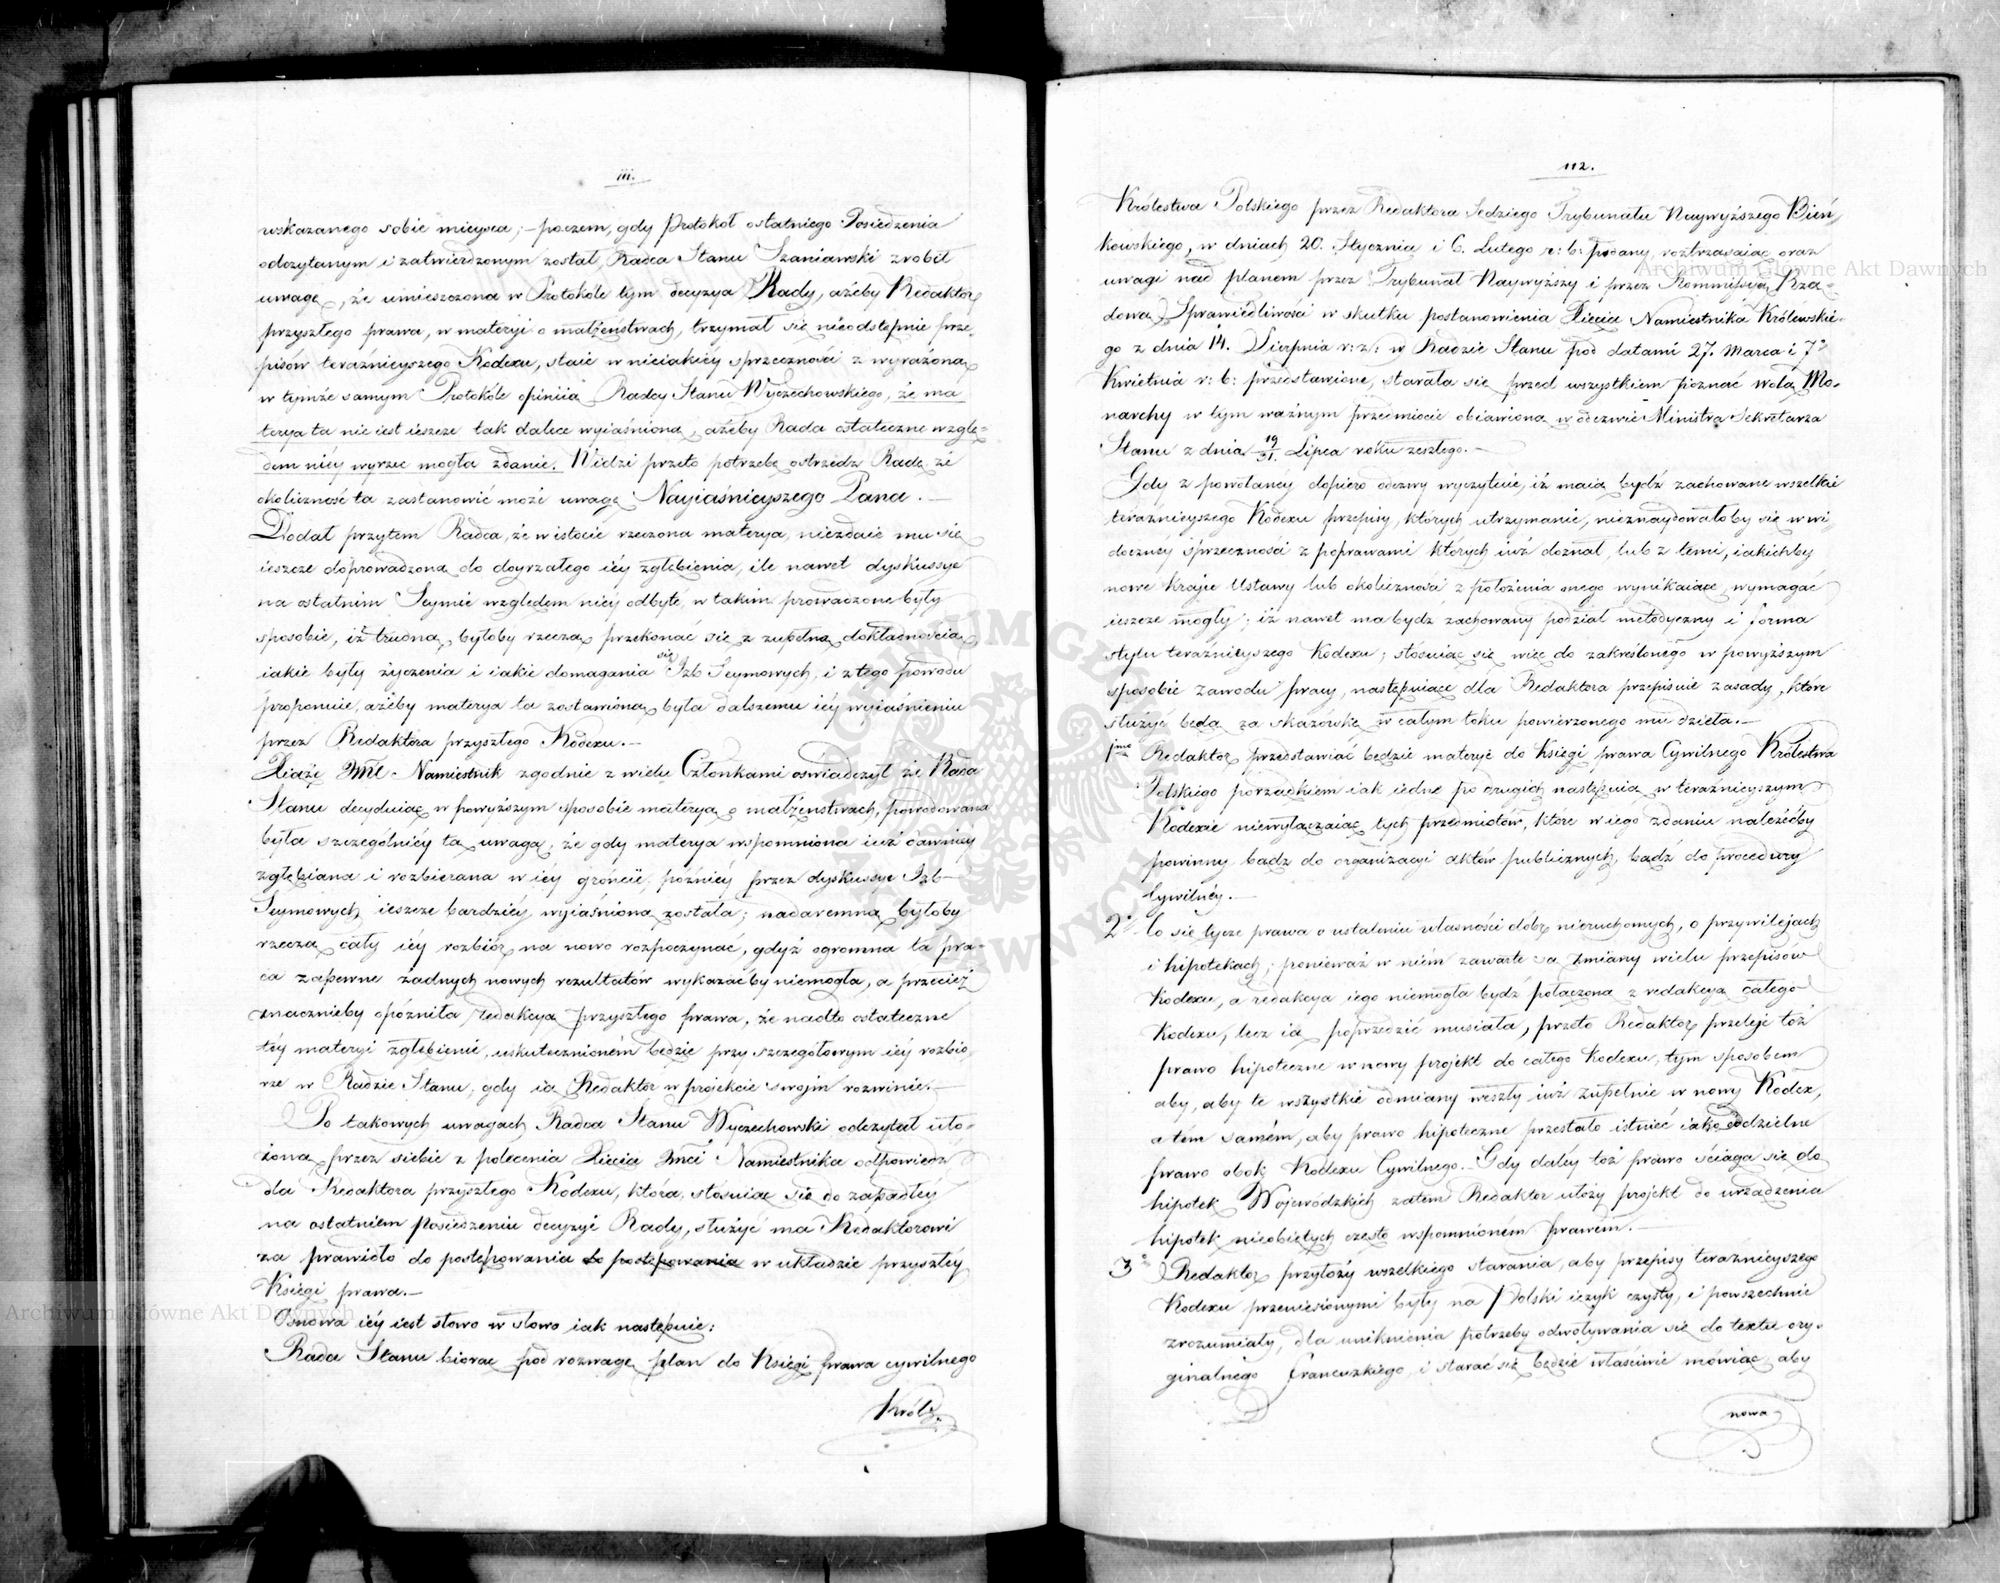 111.
wskazanego sobie mieysca; – poczem, gdy Protokół ostatniego Posiedzenia
odczytanym i zatwierdzonym został, Radca Stanu Szaniawski zrobił
uwagę, że umieszczona w Protokóle tym decyzya Rady, ażeby Redaktor
przyszłego prawa, w materyi o małżeństwach, trzymał się nieodstępnie prze-
pisów teraźnieyszego Kodexu, staie w nieiakiéy sprzeczności z wyrażoną
w tymże samym Protokóle opiniią Radcy Stanu Wyczechowskiego, że ma-
terya ta nie iest ieszcze tak dalece wyiaśniona, ażeby Rada ostateczne wzglę-
dem niey wyrzec mogła zdanie. Widzi przeto potrzebę ostrzedz Radę, że
okoliczność ta zastanowić może uwagę Nayiaśnieyszego Pana. –
Dodał przytem Radca, że w istocie rzeczona materya, niezdaie mu się
ieszcze doprowadzoną do doyrzałego iéy zgłębienia, ile nawet dyskussye
na ostatnim Seymie względem niéy odbyte, w takim prowadzone były
sposobie, iż trudną byłoby rzeczą przekonać się z zupełną dokładnością
iakie były życzenia i iakie domagania się Izb Seymowych, i z tego powodu
proponuie, ażeby materya ta zostawioną była dalszemu iéy wyiaśnieniu
przez Redaktora przyszłego Kodexu. –
Xiążę Jmć Namiestnik zgodnie z wielu Członkami oświadczył że Rada
Stanu decyduiąc w powyższym sposobie materyą o małżeństwach, powodowana
była szczególniéy tą uwagą; że gdy materya wspomniona iuż dawniey
zgłębiana i rozbierana w iéy gronie, późniéy przez dyskussye Izb
Seymowych ieszcze bardziéy wyiaśnioną została; nadaremną byłoby
rzeczą cały iéy rozbiór na nowo rozpoczynać, gdyż ogromna ta pra-
ca zapewne żadnych nowych rezultatów wykazać by niemogła, a przecież
znacznieby opóźniła redakcyą przyszłego prawa, że nadto ostateczne
téy materyi zgłębienie, uskutecznioném będzie przy szczegółowym iéy rozbio-
rze w Radzie Stanu, gdy ią Redaktor w projekcie swojm rozwinie. –
Po takowych uwagach Radca Stanu Wyczechowski odczytał uło-
żoną przez siebie z polecenia Xięcia Jmci Namiestnika odpowiedź
dla Redaktora przyszłego Kodexu, która, stósuiąc się do zapadłéy
na ostatniem Posiedzeniu decyzyi Rady, służyć ma Redaktorowi
za prawidło do postępowania do postępowania w układzie przyszłéy
Księgi prawa. –
Osnowa iéy iest słowo w słowo iak następuie:
Rada Stanu biorąc pod rozwagę plan do Księgi prawa cywilnego
Król.
112.
Królestwa Polskiego przez Redaktora Sędziego Trybunału Naywyższego Bień-
kowskiego, w dniach 20. Stycznia i 6. Lutego r: b: podany, roztrząsaiąc oraz
uwagi nad planem przez Trybunał Naywyższy i przez Kommissyą Rzą-
dową Sprawiedliwości w skutku postanowienia Xięcia Namiestnika Królewskie-
go z dnia 14. Sierpnia r: z: w Radzie Stanu pod datami 27. Marca i 7o
Kwietnia r: b: przedstawione, starała się przed wszystkiem poznać wolą Mo-
narchy w tym ważnym przedmiocie obiawioną w odezwie Ministra Sekretarza
Stanu z dnia 19/31. Lipca roku zeszłego. –
Gdy z powołaney dopiero odezwy wyczytuie, iż maią bydź zachowane wszelkie
teraźnieyszego Kodexu przepisy, których utrzymanie, nieznaydowałoby się w wi-
doczney sprzeczności z poprawami których iuż doznał, lub z temi, iakichby
nowe kraju Ustawy lub okoliczności z położenia onego wynikaiące, wymagać
ieszcze mogły; iż nawet ma bydź zachowany podział metodyczny i forma
stylu teraźnieyszego Kodexu; stósuiąc się więc do zakreślonego w powyższym
sposobie zawodu pracy, następuiące dla Redaktora przepisuie zasady, które
służyć będą za skazówkę w całym toku powierzonego mu dzieła. –
1mo Redaktor przedstawiać będzie materye do Księgi prawa Cywilnego Królestwa
Polskiego porządkiem iak iedne po drugich następuią w teraźnieyszym
Kodexie niewyłączaiąc tych przedmiotów, które w iego zdaniu należéćby
powinny bądź do organizacyi aktów publicznych, bądź do procedury
Cywilnéy. –
2o Co się tycze prawa o ustaleniu własności dóbr nieruchomych, o przywilejach
i hipotekach; ponieważ w niém zawarte są zmiany wielu przepisów
Kodexu, a redakcya iego niemogła bydź połączona z redakcyą całego
Kodexu, lecz ią poprzedzić musiała, przeto Redaktor przeleje toż
prawo hipoteczne w nowy projekt do całego Kodexu, tym sposobem
aby, aby te wszystkie odmiany weszły iuż zupełnie w nowy Kodex,
a tém samém, aby prawo hipoteczne przestało istnieć iako oddzielne
prawo obok Kodexu Cywilnego. – Gdy daléy toż prawo ściąga się do
hipotek Wojewódzkich zatem Redaktor ułoży projekt do urządzenia
hipotek nieobiętych często wspomnioném prawem. –
3o Redaktor przyłoży wszelkiego starania, aby przepisy teraznieyszego
Kodexu przeniesionymi były na Polski ięzyk czysty, i powszechnie
zrozumiały, dla uniknienia potrzeby odwoływania się do textu ory-
ginalnego francuzkiego, i starać się będzie właściwie mówiąc aby
nowa
Archiwum Główne Akt Dawnych
Archiwum Główne Akt Dawnych
ARCHIWUM GŁÓWNE AKT DAWNYCH